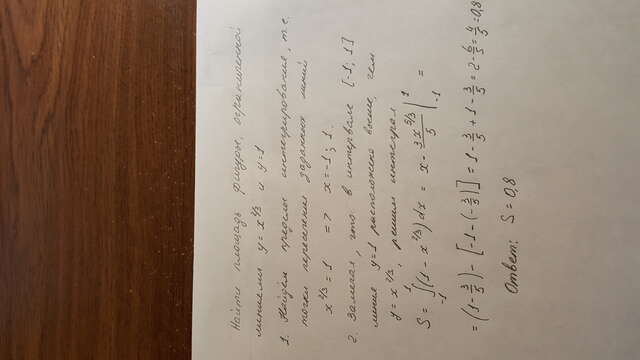 Найти площадь фигуры, ограниченной
линиями y = x^{2/3} и y=1
1. Найдём пределы интегрирования, т.е.
точки пересечения заданных линий
x^{2/3} = 1 => x = -1; 1.
2. Замечая, что в интервале [-1; 1]
линия y=1 расположена выше, чем
y = x^{2/3}, решим интеграл
S = ∫_{-1}^{1} (1 - x^{2/3}) dx = x - \frac{3x^{5/3}}{5} |_{-1}^{1} =
= (1 - \frac{3}{5}) - [-1 - (-\frac{3}{5})] = 1 - \frac{3}{5} + 1 - \frac{3}{5} = 2 - \frac{6}{5} = \frac{4}{5} = 0,8
Ответ: S = 0,8